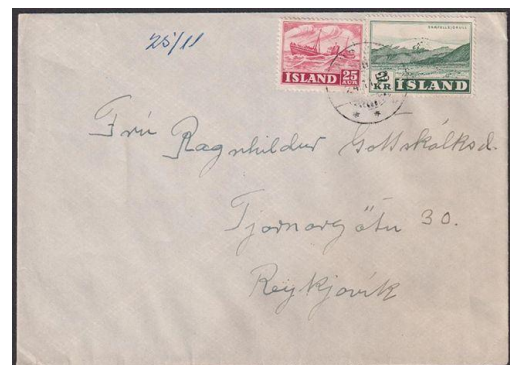 25/11
ÍSLAND
25
AUR
VATNAJÖKULL
2
KR
ÍSLAND
Frú Ragnhildur Gottskálksd.
Tjarnargötu 30.
Reykjavík